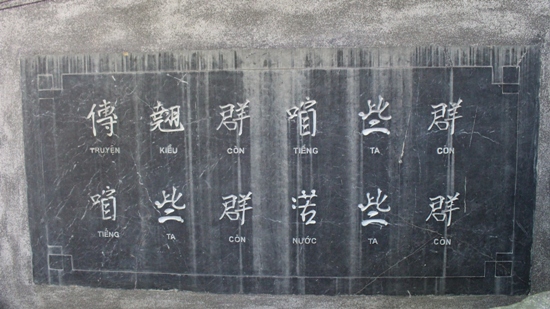 傳 翹 群 㗂 些 群
TRUYỆN KIỀU CÒN TIẾNG TA CÒN
㗂 些 群 渃 些 群
TIẾNG TA CÒN NƯỚC TA CÒN